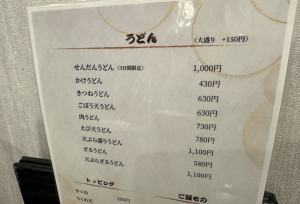 うどん (大盛り +150円)
せんだんうどん(3日間限定) 1,000円
かけうどん 430円
きつねうどん 630円
ごぼう天うどん 630円
肉うどん 730円
えび天うどん 780円
天ぷら盛りうどん 1,100円
ざるうどん 580円
天ぷらざるうどん 1,100円
トッピング
ご飯もの
きつね